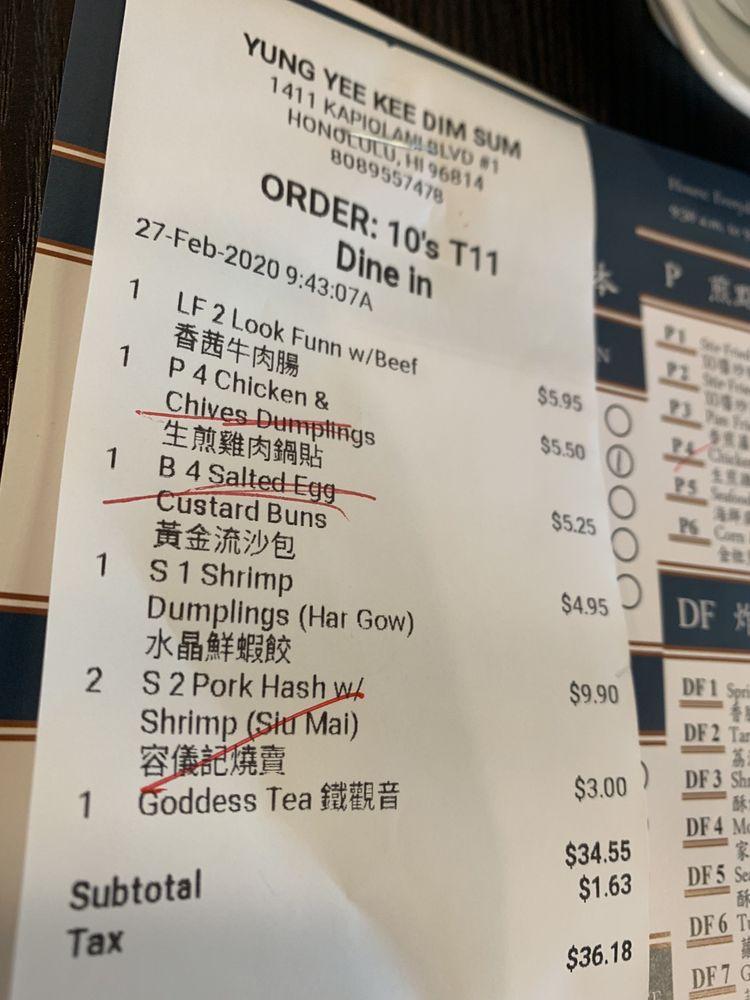 YUNG YEE KEE DIM SUM
1411 KAPIOLANI BLVD #1
HONOLULU, HI 96814
8089557478
ORDER: 10's T11
Dine in
27-Feb-2020 9:43:07A
1 LF 2 Look Funn w/Beef
香茜牛肉腸 $5.95
1 P 4 Chicken &
Chives Dumplings
生煎雞肉鍋貼 $5.50
1 B 4 Salted Egg
Custard Buns
黃金流沙包 $5.25
1 S 1 Shrimp
Dumplings (Har Gow)
水晶鮮蝦餃 $4.95
2 S 2 Pork Hash w/
Shrimp (Siu Mai)
容儀記燒賣 $9.90
1 Goddess Tea 鐵觀音 $3.00
Subtotal $34.55
Tax $1.63
$36.18
P
P1
P2
P3
P4
P5
P6
DF 炸
DF 1
DF 2
DF 3
DF 4
DF 5
DF 6
DF 7